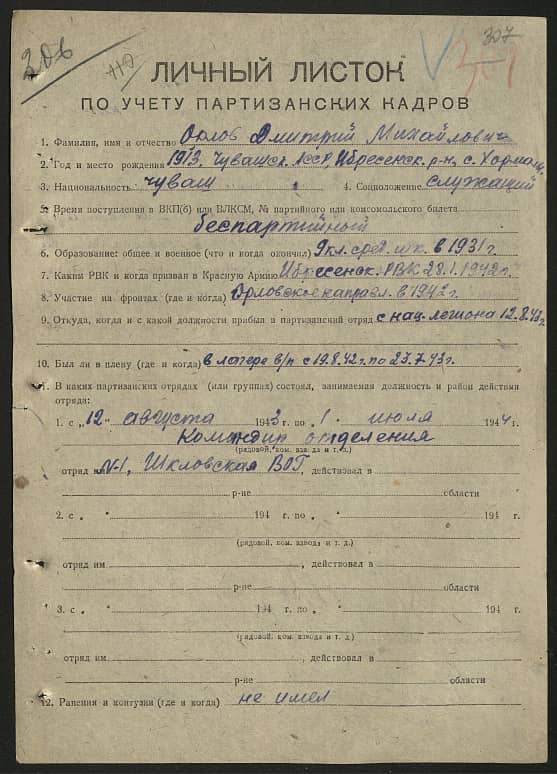 206
НО
307
ЛИЧНЫЙ ЛИСТОК
ПО УЧЕТУ ПАРТИЗАНСКИХ КАДРОВ
1. Фамилия, имя и отчество Орлов Дмитрий Михайлович
2. Год и место рождения 1913, Чувашск. АССР, Ибресенск. р-н, с. Хормалы
3. Национальность чуваш 4. Соцположение служащий
5. Время поступления в ВКП(б) или ВЛКСМ, № партийного или комсомольского билета
беспартийный
6. Образование: общее и военное (что и когда окончил) 9 кл. сред. шк. в 1931 г.
7. Каким РВК и когда призван в Красную Армию Ибресенск. РВК 28.1.1942 г.
8. Участие на фронтах (где и когда) Орловское направл. в 1942 г.
9. Откуда, когда и с какой должности прибыл в партизанский отряд с нац. легиона 12.8.43 г.
10. Был ли в плену (где и когда) в лагере в/п с 19.8.42 г. по 23.7.43 г.
11. В каких партизанских отрядах (или группах) состоял, занимаемая должность и район действия
отряда:
1. с „12" августа 1943 г. по „1 " июля 1944 г.
Командир отделения
(рядовой, ком. взвода и т. д.)
отряд им №1, Шкловская ВОГ, действовал в
р-не области
2. с „ " 194 г. по „ " 194 г.
(рядовой, ком. взвода и т. д.)
отряд им , действовал в
р-не области
3. с „ " 194 г. по „ " 194 г.
(рядовой, ком. взвода и т. д.)
отряд им , действовал в
р-не области
12. Ранения и контузии (где и когда) не имел